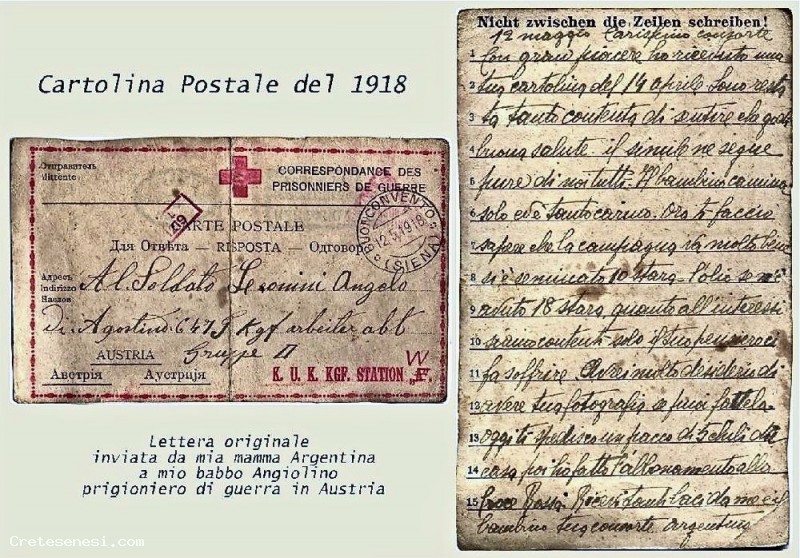 Cartolina Postale del 1918
Отправитель
CORRESPONDANCE DES
PRISONNIERS DE GUERRE
CARTE POSTALE
Для Отвѣта — RISPOSTA — Одговор
BUONCONVENTO
(SIENA)
Адресъ
Indirizzo
Al Soldato Lesonini Angelo
di Agostino 647 J. Kgf. arbeiter abt
Gruppe II
AUSTRIA
Австрія Аустрија
W
K. U. K. KGF. STATION „F.
Lettera originale
inviata da mia mamma Argentina
a mio babbo Angiolino
prigioniero di guerra in Austria
Cretesenesi.com
Nicht zwischen die Zeilen schreiben!
12 maggio Carissimo consorte
1 Con gran piacere ho ricevuto una
2 tua cartolina del 19 aprile Sono resta
3 ta tanto contenta di sentire che godi
4 buona salute il simile ne segue
5 pure di noi tutti. Il bambino camina
6 solo ed è tanto carino. Ora ti faccio
7 sapere che la campagna va molto bene
8 si è seminato 10 stara. L'olio se n'è
9 avuto 18 stara, quanto all'interessi
10 siamo contenti solo il tuo pensiero ci
11 fa soffrire. Avrei molto desiderio di
12 avere tua fotografia se puoi fattela
13 oggi ti spedisco un pacco di 5 chili di
14 casa poi ho fatto l'abbonamento alla
15 Croce Rossa Ricevi tanti baci da me e il
bambino tua consorte Argentina